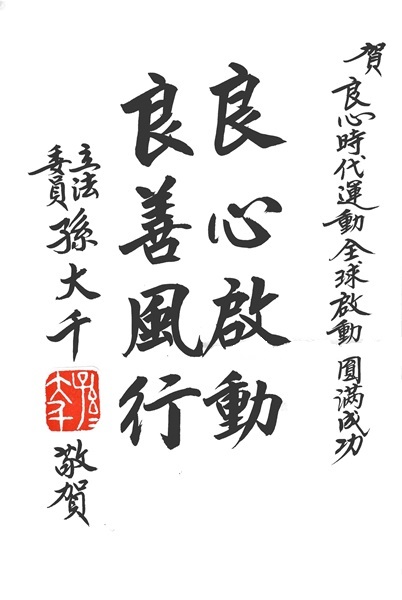 賀 良心時代運動全球啟動 圓滿成功
良心啟動
良善風行
立法委員 孫大千 敬賀
孫大千